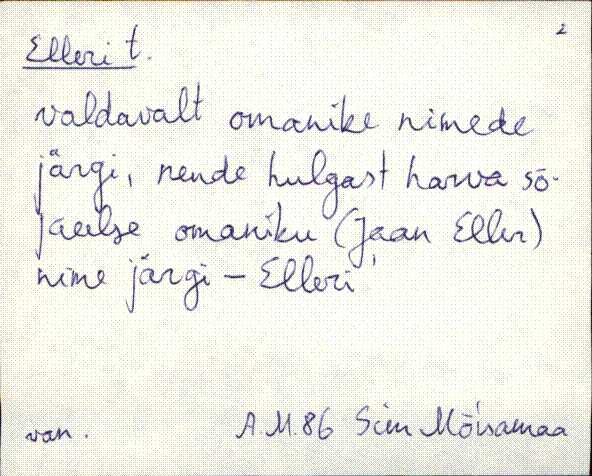 2
Elleri t.
valdavalt omanike nimede
järgi, nende hulgast harva sõ-
jaeelse omaniku (Jaan Eller)
nime järgi – Elleri'
van. A.M.86 Siim Mõisamaa